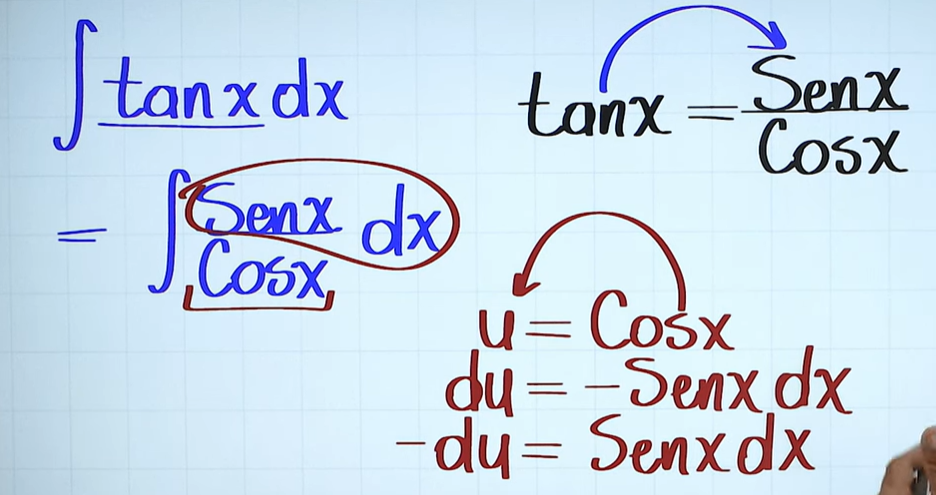 ∫ tan x dx
tanx = Senx / Cosx
= ∫ Senx / Cosx dx
u = Cosx
du = -Senx dx
-du = Senx dx